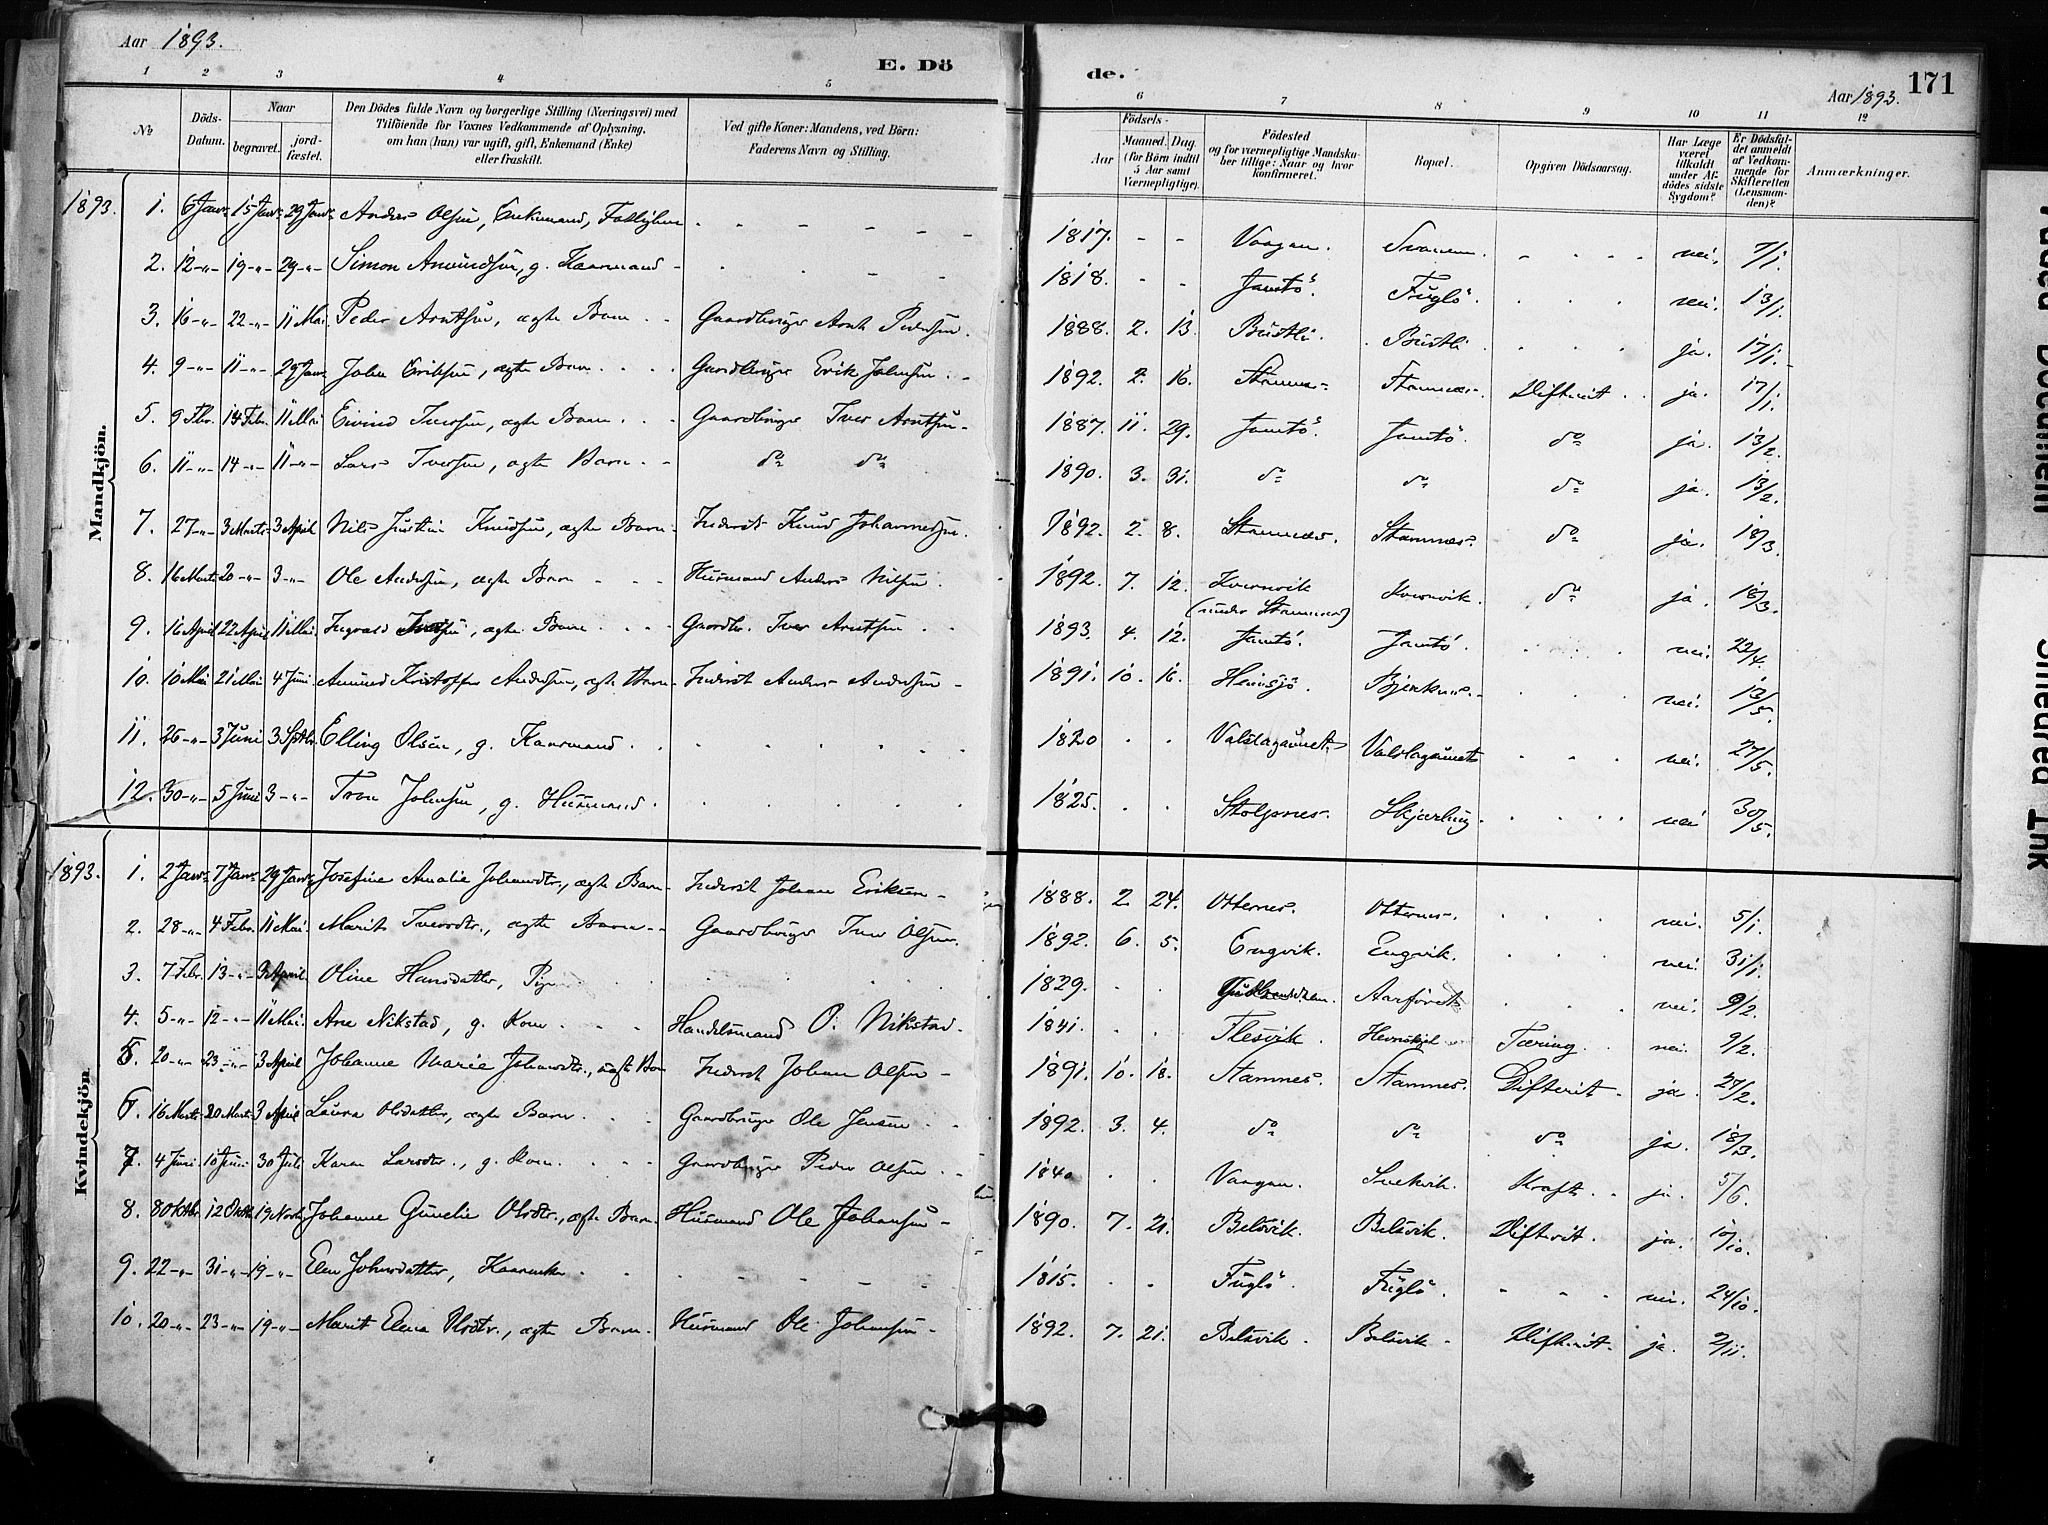 Aar 1893.
E. Dö
de.
Aar 1893.
171
1 2 3 4 5 6 7 8 9 10 11 12
No
Döds-Datum.
Naar
begravet.
jord-fæstet.
Den Dödes fulde Navn og borgerlige Stilling (Næringsvei) med
Tilföiende for Voxnes Vedkommende af Oplysning,
om han (hun) var ugift, gift, Enkemand (Enke)
eller fraskilt.
Ved gifte Koner: Mandens, ved Börn:
Faderens Navn og Stilling.
Födsels-
Aar
Maaned. Dag
(for Börn indtil
5 Aar samt
Værnepligtige).
Födested
og for værnepligtige Mandska-
ber tillige: Naar og hvor
konfirmeret.
Bopæl.
Opgiven Dödsaarsag.
Har Læge
været
tilkaldt
under Af-
dödes sidste
Sygdom?
Er Dödsfal-
det anmeldt
af Vedkom-
mende for
Skifteretten
(Lensman-
den)?
Anmærkninger.
Mandkjön.
1893. 1. 6 Janr 15 Janr 29 Janr Anders Olsen, Enkemand, 1817. - - Vaagan. nei. 7/1.
2. 12 -"- 19 -"- 29 -"- Simon Amundsen, g. Kaarmand 1818. - - Jamtö. Fuglö. nei. 13/1.
3. 16 -"- 22 -"- 11 Mai Peder Arntsen, ægte Barn Gaardbruger Arnt Pedersen. 1888. 2. 13. Bustli. Bustli ja. 17/1.
4. 9 -"- 11 -"- 29 Janr John Eriksen, ægte Barn Gaardbruger Erik Johnsen 1892. 2. 16. Stamnes Stamnes Difterit ja. 17/1.
5. 9 Fbr. 14 Febr. 11 Mai Eivind Iversen, ægte Barn Gaardbruger Iver Arntsen 1887. 11. 29. Jamtö. Jamtö. do ja. 13/2.
6. 11 -"- 14 -"- 11 -"- Lars Iversen, ægte Barn do do 1890. 3. 31. do do do ja. 13/2.
7. 27 -"- 3 Marts 3 April Nils Justin Knudsen, ægte Barn Inderst Knud Johannessen. 1892. 2. 8. Stamnes. Stamnes. do ja. 18/3.
8. 16 Mart. 20 -"- 3 -"- Ole Andersen, ægte Barn Husmand Anders Nilsen. 1892. 7. 12. Kvernvik (under Stamnes) Kvernvik. do ja. 18/3.
9. 16 April 22 April 11 Mai Ingvald Iversen, ægte Barn Gaardbr. Iver Arntsen 1893. 4. 12. Jamtö. Jamtö. nei. 22/4.
10. 10 Mai 21 Mai 4 Juni Amund Kristoffer Andersen, ægte Barn Inderst Anders Andersen 1891. 10. 16. Heimsjö. nei. 13/5.
11. 26 -"- 3 Juni 3 Septbr. Elling Olsen, g. Kaarmand. 1820 Valslagaunet Valslagaunet nei. 27/5.
12. 30 -"- 5 Juni 3 -"- Tron Johnsen, g. Husmand. 1825. Stolpnes. nei 30/5.
Kvindekjön.
1893. 1. 2 Janr 7 Janr 29 Janr Josefine Amalie Johansdtr., ægte Barn Inderst Johan Eriksen 1888. 2. 24. Otternes. Otternes. nei. 5/1.
2. 28 -"- 4 Febr. 11 Mai. Marit Iversdtr., ægte Barn Gaardbruger Iver Olsen. 1892. 6. 5. Engvik. Engvik. nei. 31/1.
3. 7 Febr. 13 -"- 3 April Oline Hansdatter, Pige 1829. Aarföret nei. 9/2.
4. 5 -"- 12 -"- 11 Mai. Ane Nikstad, g. Kone Handelsmand O. Nikstad. 1841. Flesvik. Hevnskjel Tæring nei. 9/2.
5. 20 -"- 23 -"- 3 April Johanne Marie Johansdtr., ægte Barn Inderst Johan Olsen 1891. 10. 18. Stamnes. Stamnes. Difterit. ja. 27/2.
6. 16 Marts 20 Marts 3 April Laura Olsdatter, ægte Barn Gaardbruger Ole Jensen 1892. 3. 4. do do do ja. 18/3.
7. 4 Juni 10 Juni 30 Juli Karen Larsdtr., g. Kone. Gaardbruger Peder Olsen 1840 Vaagan. Kræft. ja. 5/6.
8. 8 Oktbr. 12 Oktbr. 19 Novbr. Johanne Gurelie Olsdtr., ægte Barn Husmand Ole Johansen 1890. 7. 21. Belsvik. Belsvik. Difterit. ja. 10/10.
9. 22 -"- 31 -"- 19 -"- Elen Johnsdatter, Kaarenke 1815. Fuglö. Fuglö. nei. 24/10.
10. 20 -"- 23 -"- 19 -"- Marit Elena Olsdtr., ægte Barn. Husmand Ole Johansen 1892. 7. 21. Belsvik Belsvik Difterit. ja. 2/11.
Faded Document
Smeared Ink